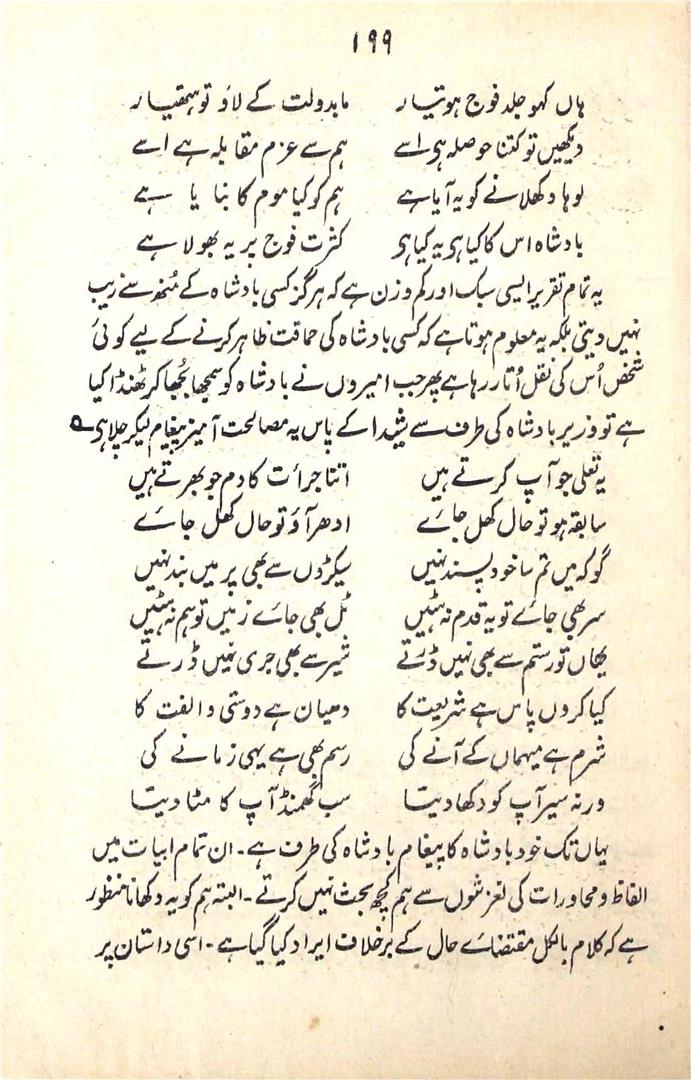 ۱۹۹
ہاں کہو جلد فوج ہو تیار مابدولت کے لاؤ تو ہتھیار
دیکھیں تو کتنا حوصلہ ہی اسے ہم سے عزم مقابلہ ہے اسے
لوہا دکھلانے کو یہ آیا ہے ہم کو کیا موم کا بنا یا ہے
بادشاہ اس کا کیا ہی یہ کیا ہی کثرت فوج پر یہ بھولا ہے
یہ تمام تقریر ایسی سبک اور کم وزن ہے کہ ہرگز کسی بادشاہ کے مُنھ سے زیب
نہیں دیتی بلکہ یہ معلوم ہوتا ہے کہ کسی بادشاہ کی حماقت ظاہر کرنے کے لیے کوئی
شخص اُس کی نقل اُتار رہا ہے پھر جب امیروں نے بادشاہ کو سمجھا بُجھا کر ٹھنڈا کیا
ہے تو وزیر بادشاہ کی طرف سے شیدا کے پاس یہ مصالحت آمیز پیغام لیکر چلا ہی ؎
یہ تعلی جو آپ کرتے ہیں اتنا جرائت کا دم جو بھرتے ہیں
سابقہ ہو تو حال کھل جائے ادھر آؤ تو حال کھل جائے
گو کہ میں تم سا خود پسند نہیں سیکڑوں سے بھی پر میں بند نہیں
سر بھی جائے تو یہ قدم نہ ہٹیں ٹل بھی جائے زمیں تو ہم نہ ہٹیں
یھاں تو رستم سے بھی نہیں ڈرتے شیر سے بھی جری نہیں ڈرتے
کیا کروں پاس ہے شریعت کا دھیان ہے دوستی و الفت کا
شرم ہے میہماں کے آنے کی رسم بھی ہے یہی زمانے کی
ورنہ سیر آپ کو دکھا دیتا سب گھمنڈ آپ کا مٹا دیتا
یہاں تک خود بادشاہ کا پیغام بادشاہ کی طرف ہے۔ ان تمام ابیات میں
الفاظ و محاورات کی لغزشوں سے ہم کچھ بحث نہیں کرتے۔ البتہ ہم کو یہ دکھانا منظور
ہے کہ کلام بالکل مقتضائے حال کے برخلاف ایراد کیا گیا ہے۔ اسی داستان پر